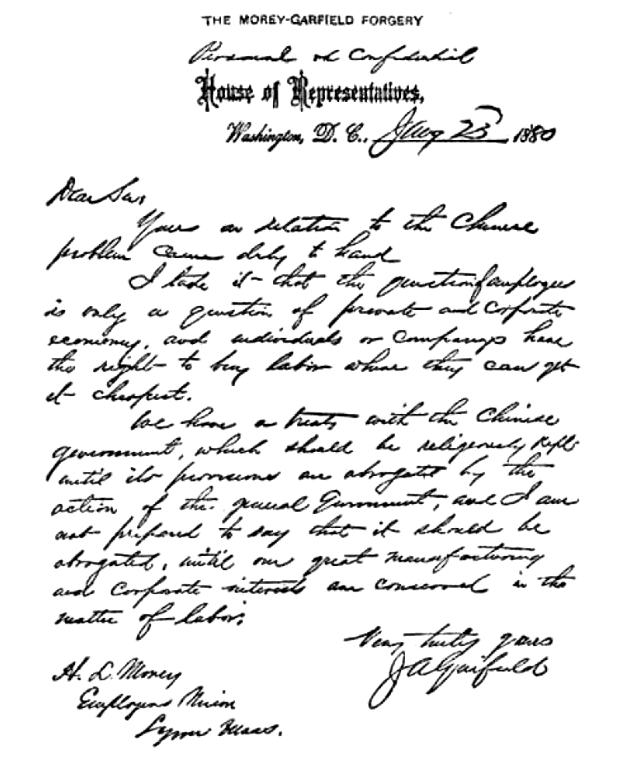 THE MOREY-GARFIELD FORGERY
Personal and Confidential
House of Representatives,
Washington, D. C., Jany 23 1880
Dear Sir,
Yours in relation to the Chinese
problem came duly to hand
I take it that the question of employees
is only a question of private and Corporate
economy, and individuals or Companys have
the right to buy labor where they can get
it cheapest.
We have a treaty with the Chinese
Government, which should be religeously kept
until its provisions are abrogated by the
action of the general Government, and I am
not prepared to say that it should be
abrogated, until our great manufacturing
and Corporate interests are conserved in the
matter of labor.
Very truly yours
JAGarfield
H. L. Morey
Employers Union
Lynn Mass.